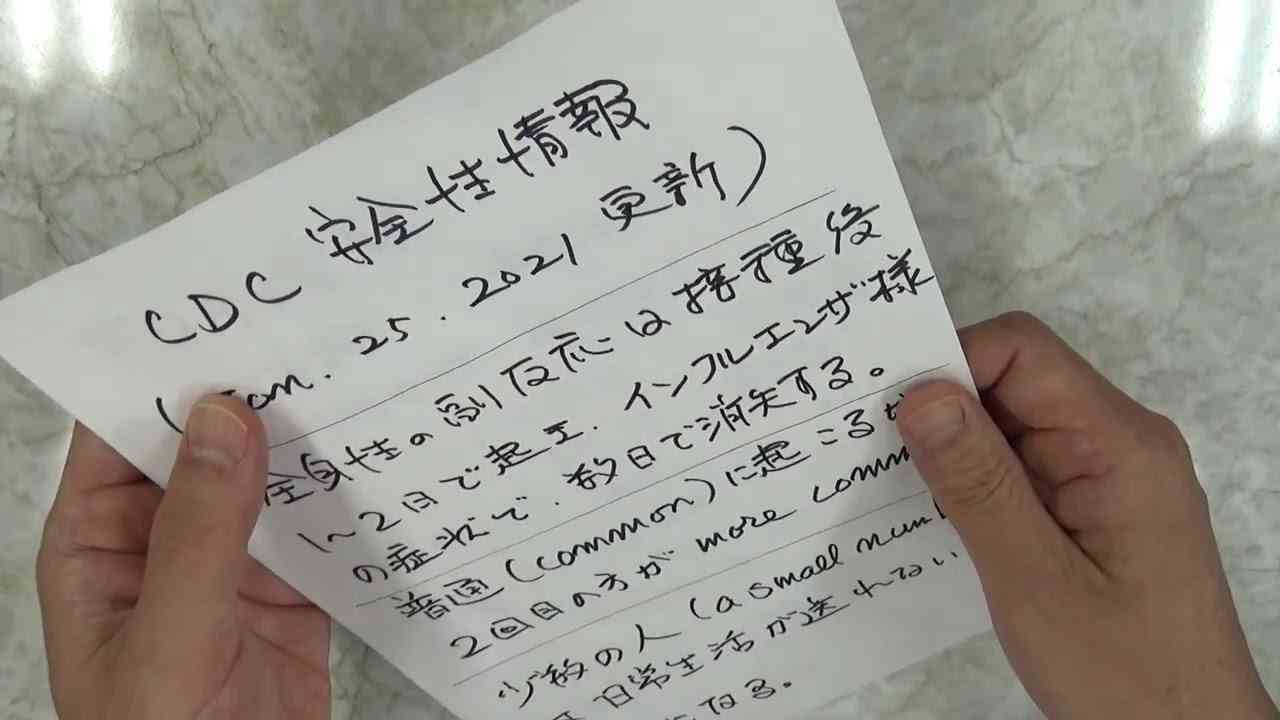 CDC 安全性情報
(Jan. 25. 2021 更新)
全身性の副反応は接種後
1〜2日で起こエ、インフルエンザ様
の症状で、数日で消失する。
普通(common)に起こるが
2回目の方が more comm
少数の人(a small num
日常生活が送れない
なる。